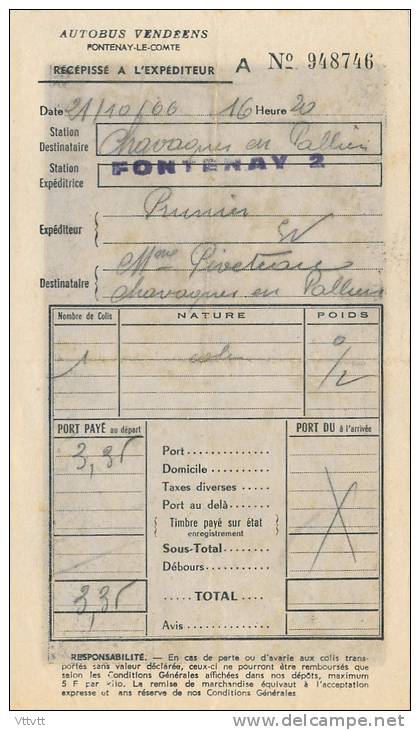 AUTOBUS VENDÉENS
FONTENAY-LE-COMTE
RÉCÉPISSÉ A L'EXPÉDITEUR A No 948746
Date 21/10/66 16 Heure 20
Station Destinataire Chavagnes en Paillers
Station Expéditrice FONTENAY 2
Expéditeur Prunier
Mme Piveteau
Destinataire Chavagnes en Paillers
Nombre de Colis NATURE POIDS
1 colis
PORT PAYÉ au départ PORT DU à l'arrivée
3,35 Port
Domicile
Taxes diverses
Port au delà
Timbre payé sur état enregistrement
Sous-Total
Débours
3,35 TOTAL
Avis
RESPONSABILITÉ. — En cas de perte ou d'avarie aux colis trans-
portés sans valeur déclarée, ceux-ci ne pourront être remboursés que
selon les Conditions Générales affichées dans nos dépôts, maximum
5 F par kilo. La remise de marchandise équivaut à l'acceptation
expresse et sans réserve de nos Conditions Générales
Vttvtt
delcampe.net